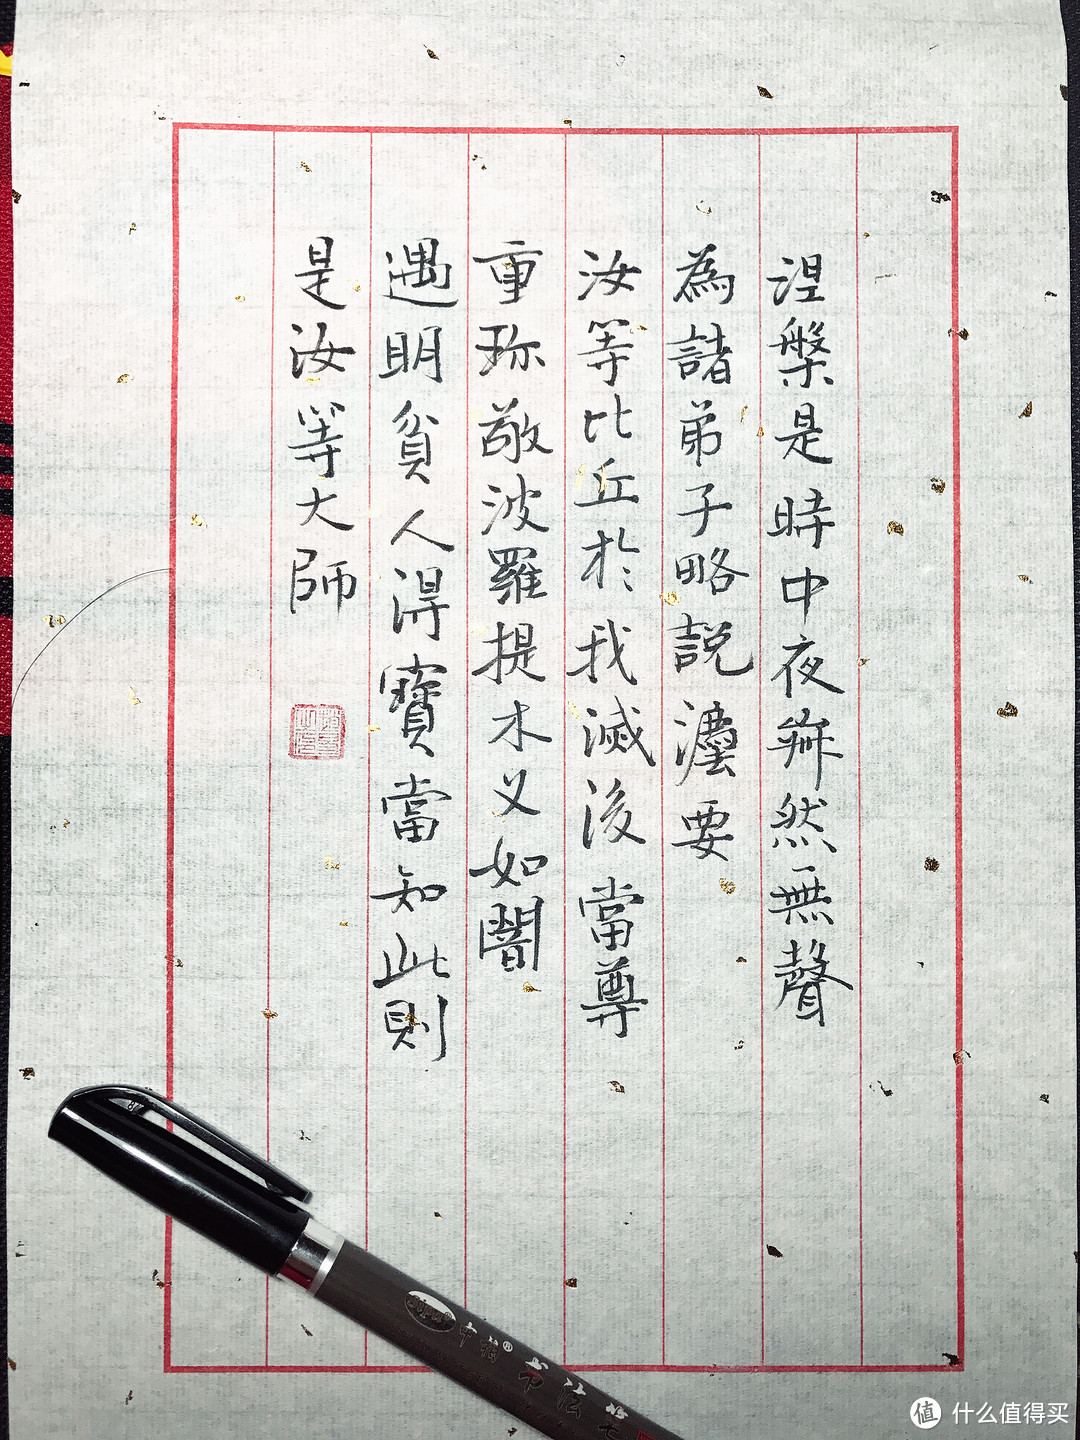 涅槃是時中夜寂然無聲
為諸弟子略說灋要
汝等比丘於我滅後當尊
重珎敬波羅提木叉如闇
遇明貧人得寶當知此則
是汝等大師
中柏®书法笔
值 什么值得买